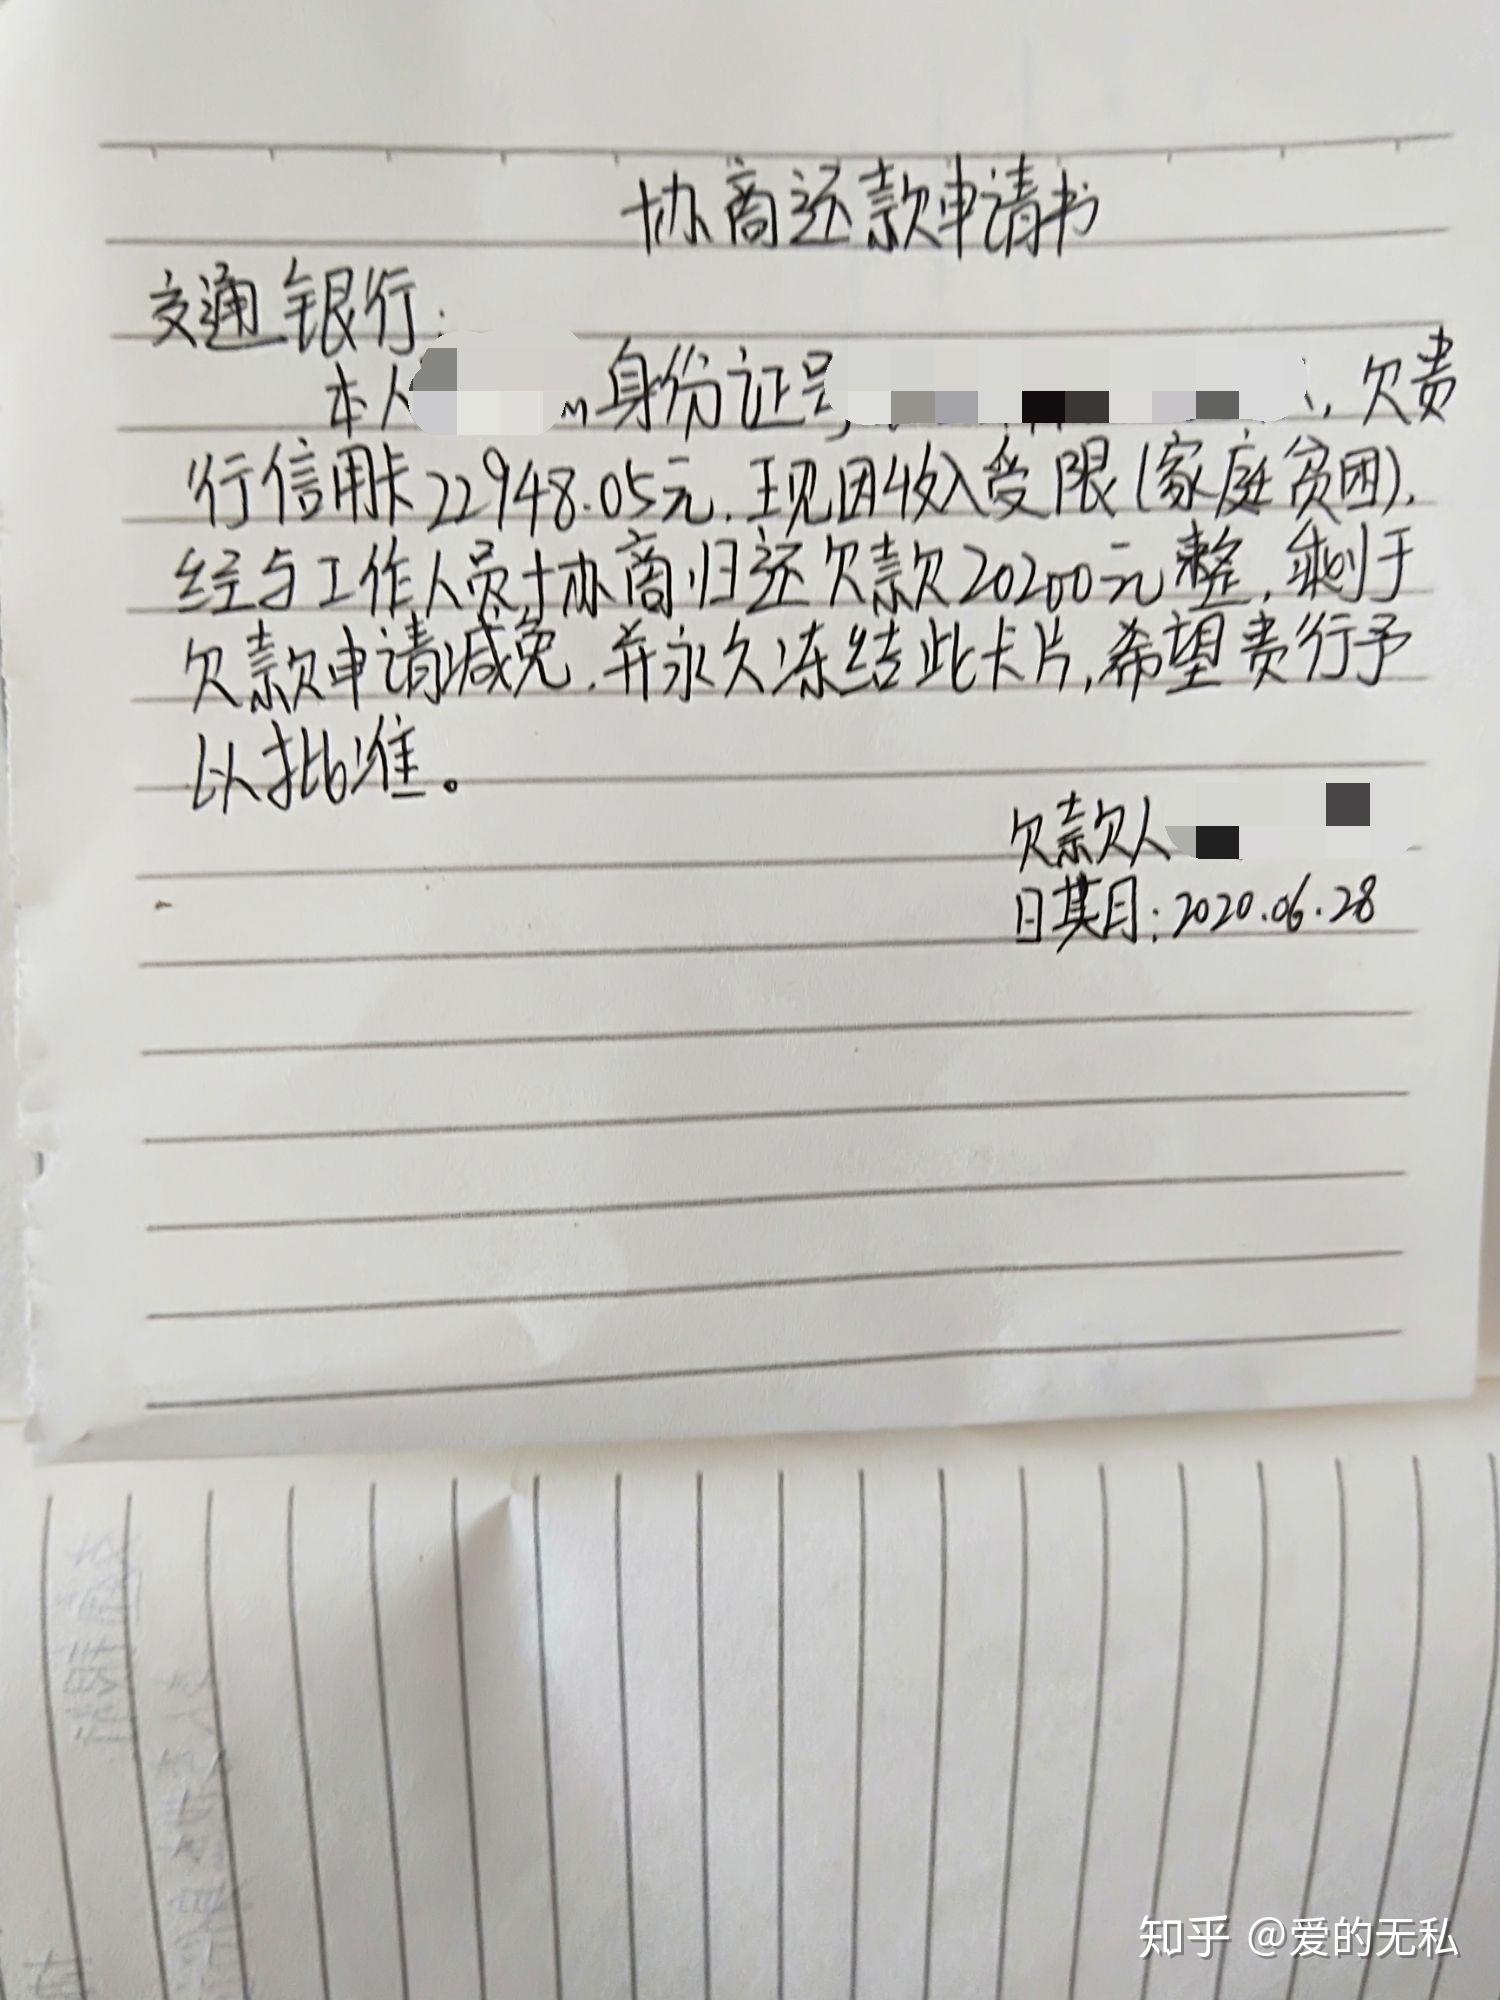 协商还款申请书
交通银行:
本人 身份证号 , 欠贵
行信用卡22948.05元. 现因收入受限(家庭贫困).
经与工作人员协商归还欠款20200元整, 剩于
欠款申请减免. 并永久冻结此卡片, 希望贵行予
以批准。
欠款人
日期: 2020.06.28
知乎 @爱的无私